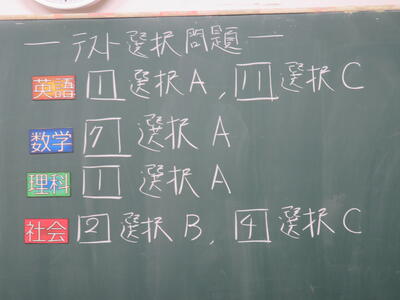 ー テスト選択問題 ー
英語 1 選択A, 11 選択C
数学 7 選択A
理科 1 選択A
社会 2 選択B, 4 選択C